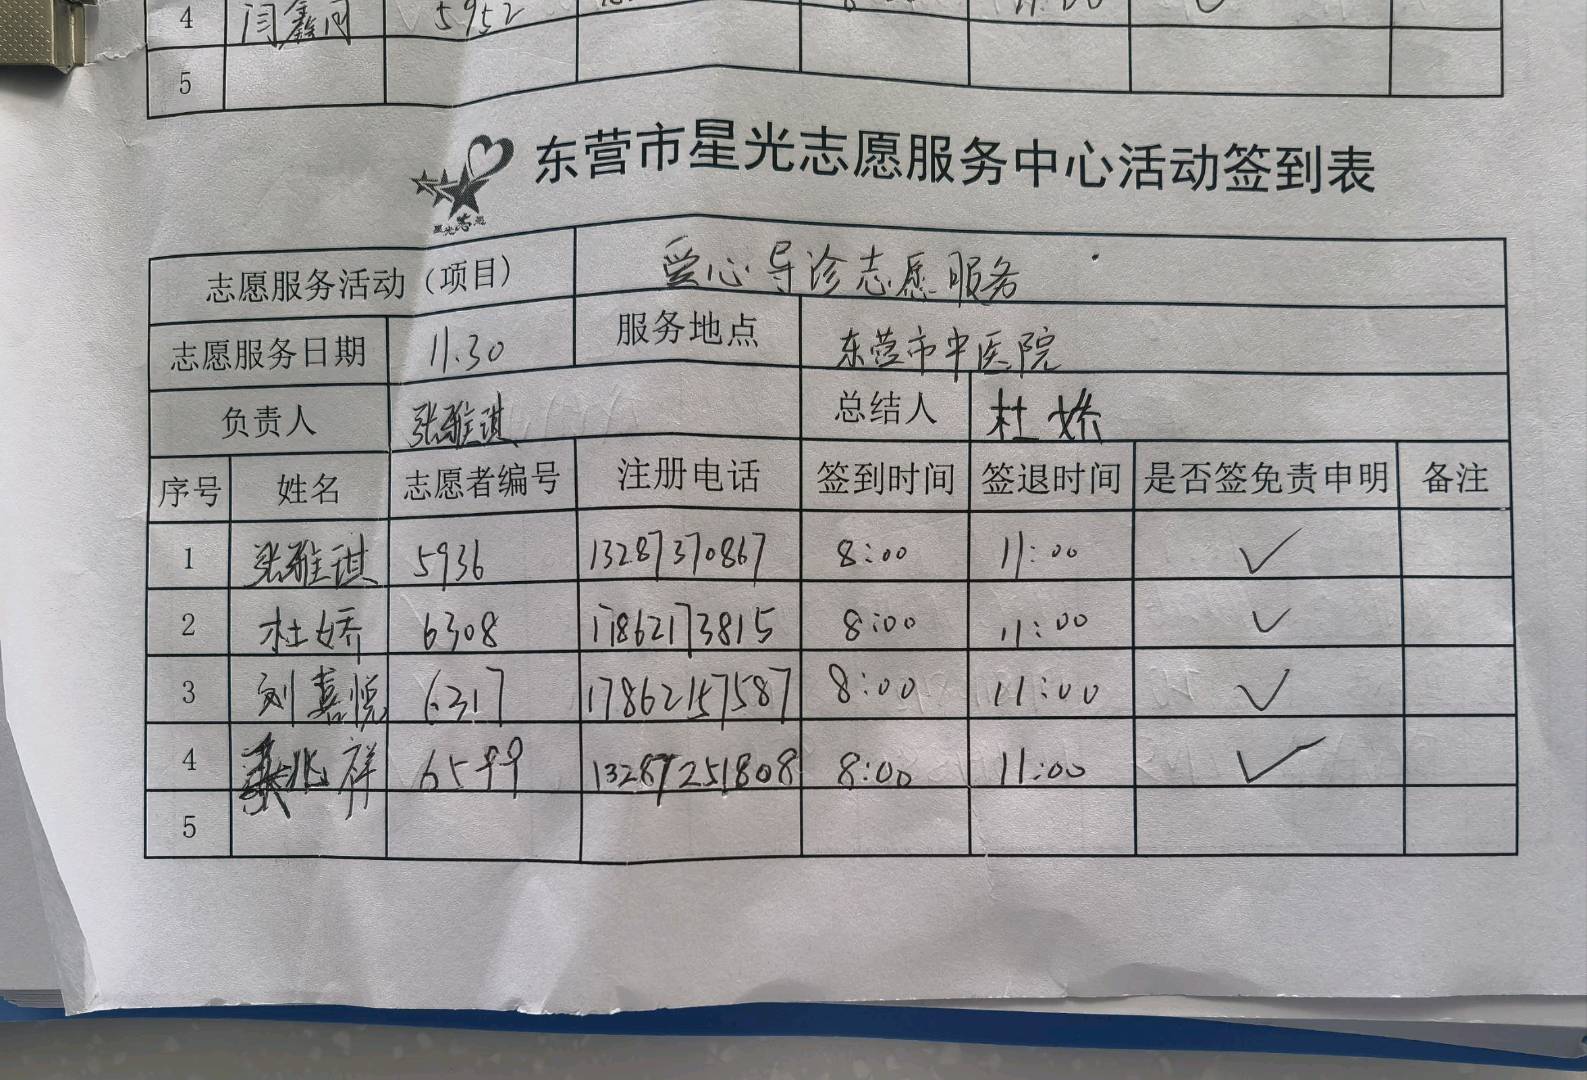 4 闫鑫闰 5952
5
东营市星光志愿服务中心活动签到表
星光志愿
志愿服务活动（项目） 爱心导诊志愿服务
志愿服务日期 11.30 服务地点 东营市中医院
负责人 张雅琪 总结人 杜娇
序号 姓名 志愿者编号 注册电话 签到时间 签退时间 是否签免责申明 备注
1 张雅琪 5936 13287370867 8:00 11:00 ✓
2 杜娇 6308 17862173815 8:00 11:00 ✓
3 刘嘉悦 6317 17862157587 8:00 11:00 ✓
4 兆祥 6599 13287251808 8:00 11:00 ✓
5